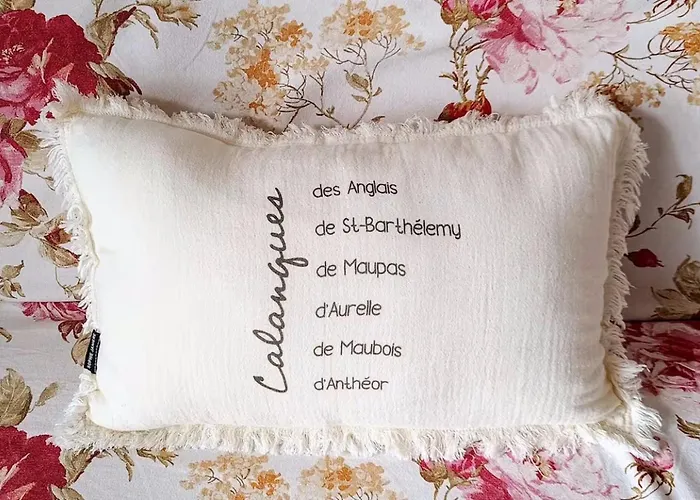 Calanques
des Anglais
de St-Barthélemy
de Maupas
d'Aurelle
de Maubois
d'Anthéor